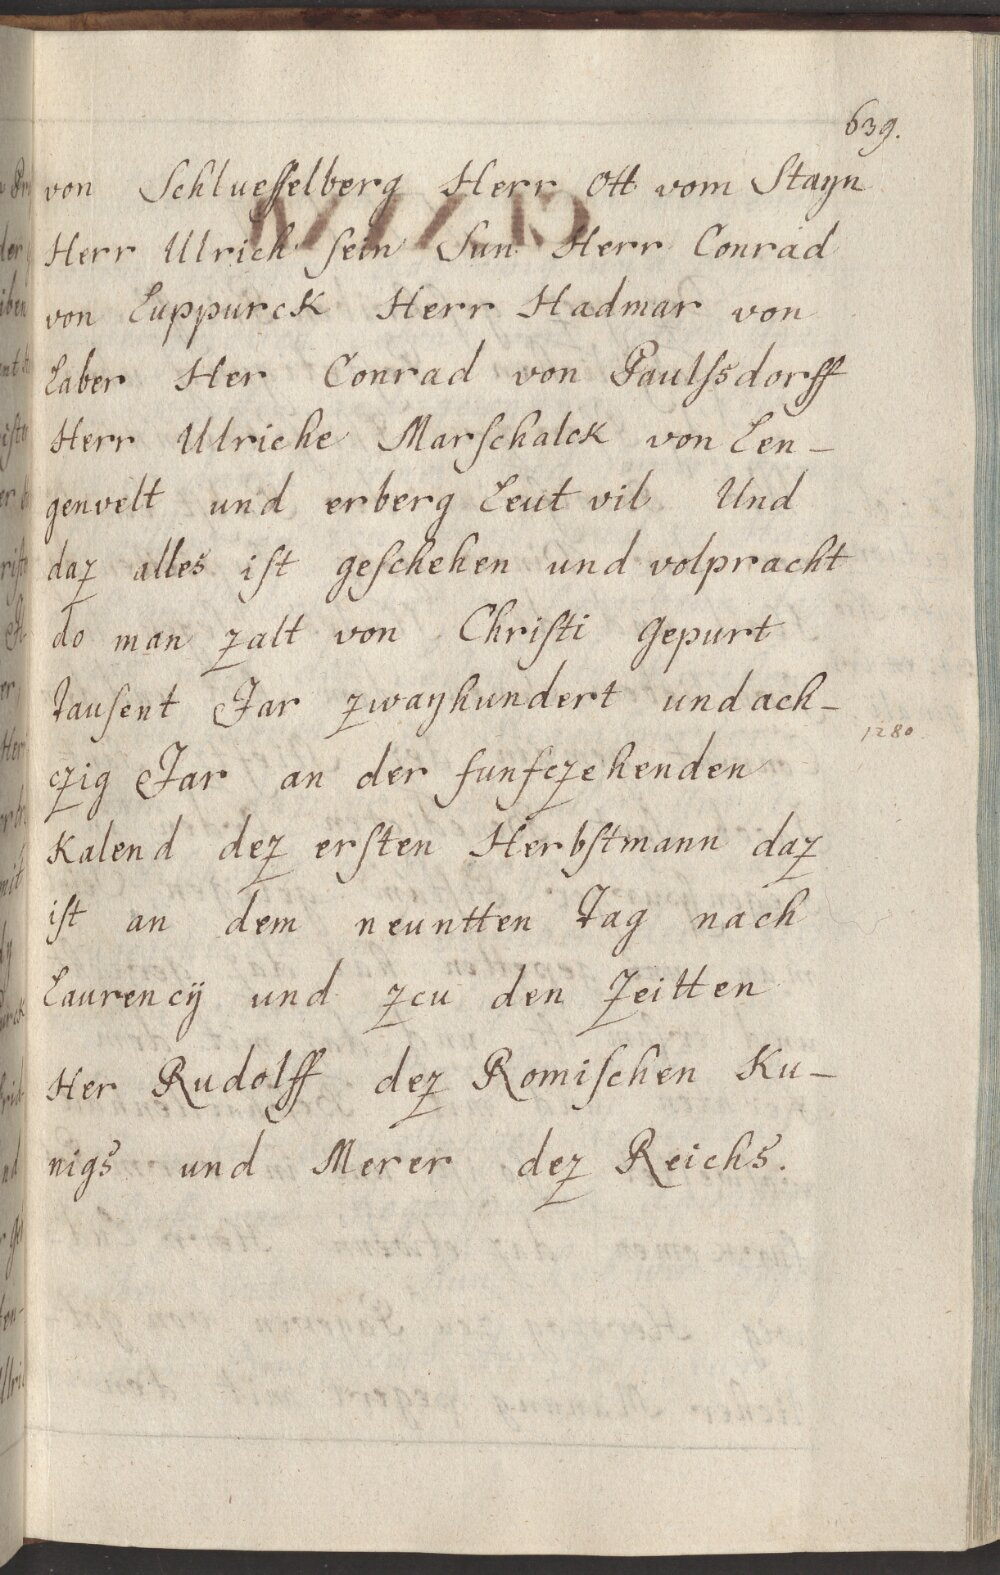 639.
von Schluesſelberg Herr Ott vom Stayn
Herr Ulrich ſein Sun Herr Conrad
von Luppurck Herr Hadmar von
Laber Her Conrad von Paulſsdorff
Herr Ulriche Marſchalck von Len-
genvelt und erberg Leut vil Und
daz alles iſt geſchehen und volpracht
do man zalt von Chriſti Gepurt
Tauſent Jar zwayhundert undach-
czig Jar an der funfczehenden
1280
Kalend dez erſten Herbſtmann daz
iſt an dem neuntten Tag nach
Laurencij und zcu den Zeitten
Her Rudolff dez Romiſchen Ku-
nigs und Merer dez Reichs.